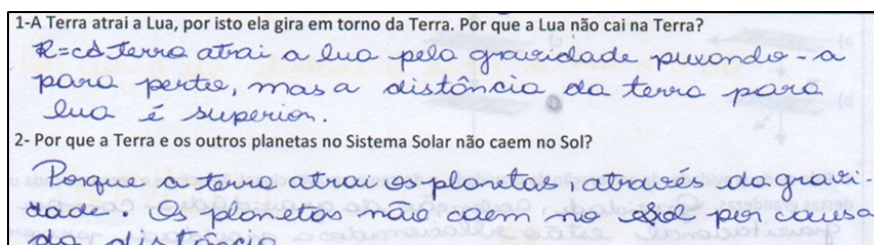 1-A Terra atrai a Lua, por isto ela gira em torno da Terra. Por que a Lua não cai na Terra?
R=cA terra atrai a lua pela gravidade puxondo-a
para perto, mas a distância da terra para
lua é superior.
2- Por que a Terra e os outros planetas no Sistema Solar não caem no Sol?
Porque a terra atrai os planetas, através da gravi-
dade. Os planetas não caem no sol por causa
da distância